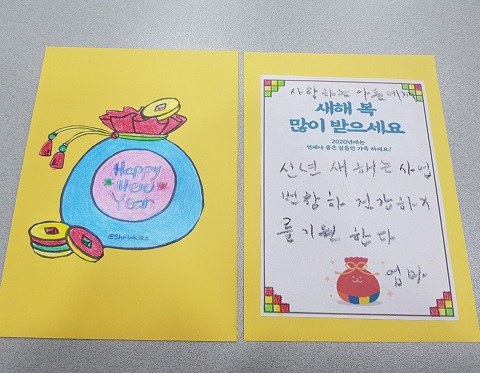 Happy
New
Year
@Shrinkles
사랑하는 아들에게
새해 복
많이 받으세요
2020년에는
언제나 좋은 일들만 가득 하세요!
신년 새해는 사업
번창하
를 기원 합다